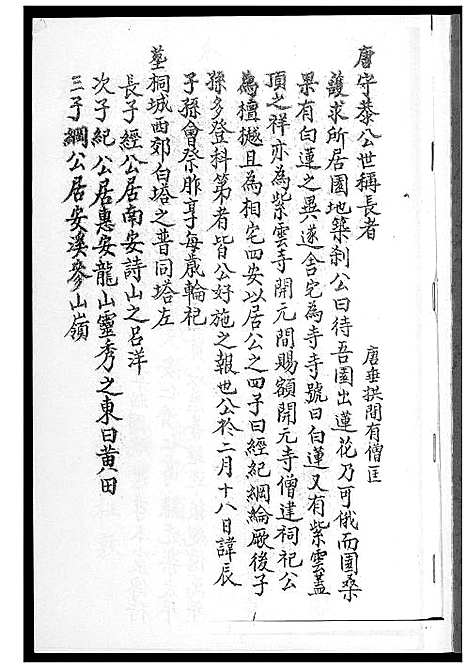 唐守恭公世稱長者　唐垂拱間有僧匡
護求所居園地築刹公曰待吾園出蓮花乃可俄而園桑
果有白蓮之異遂舍宅為寺寺號曰白蓮又有紫雲蓋
頂之祥亦為紫雲寺開元間賜額開元寺僧建祠祀公
為檀樾且為相宅四安以居公之四子曰經紀綱綸厥後子
孫多登科第者皆公好施之報也公於二月十八日諱辰
子孫會祭胙享每歲輪祀
墓桐城西郊白塔之普同塔左
長子經公居南安詩山之呂洋
次子紀公居惠安龍山靈秀之東曰黃田
三子綱公居安溪參山嶺